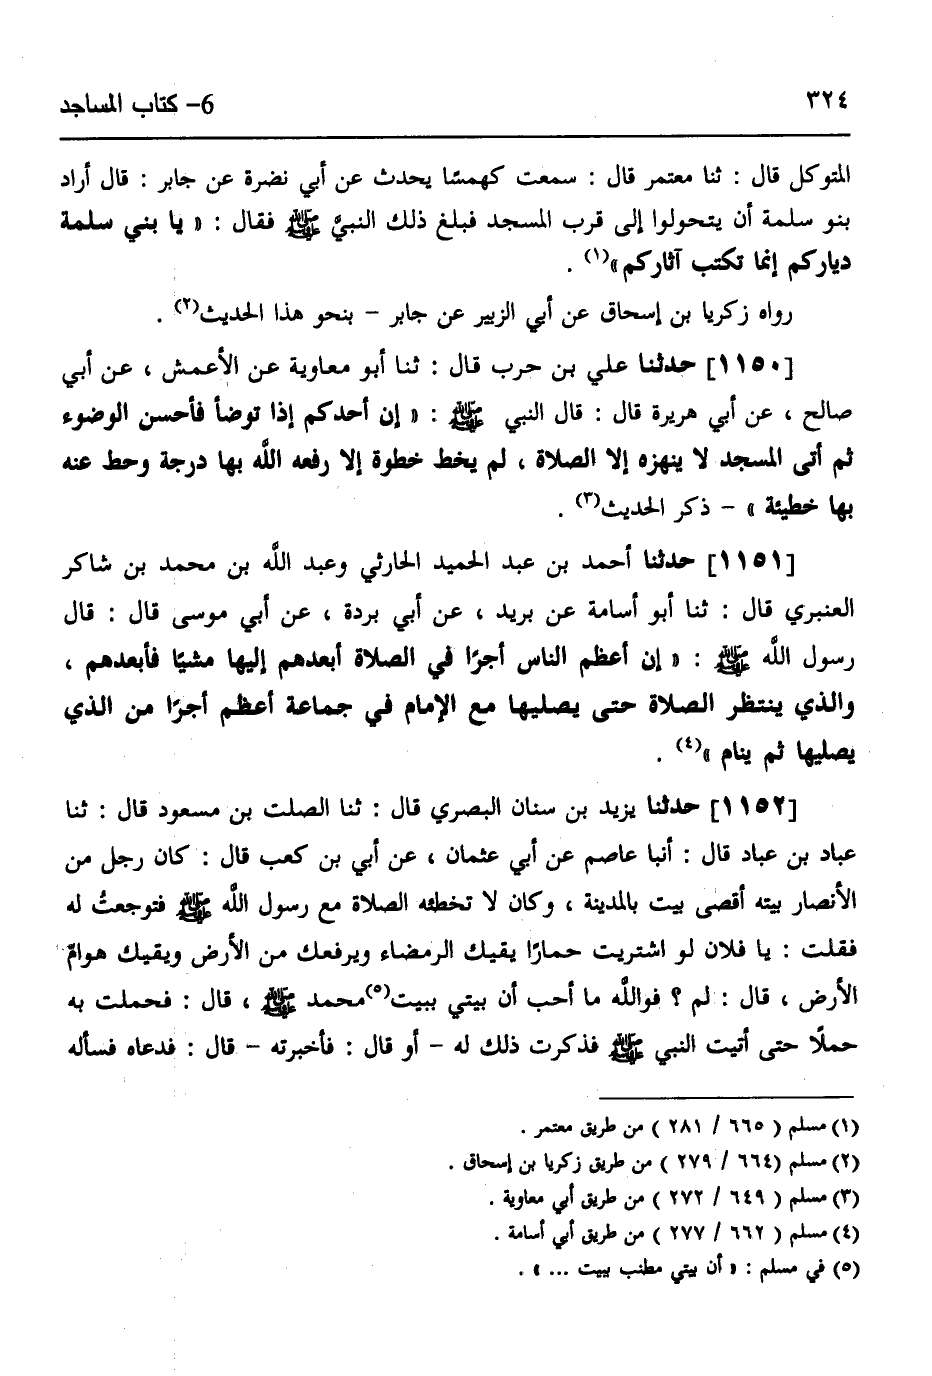 ٣٢٤
6- كتاب المساجد
المتوكل قال : ثنا معتمر قال : سمعت كهمسًا يحدث عن أبي نضرة عن جابر : قال أراد
بنو سلمة أن يتحولوا إلى قرب المسجد فبلغ ذلك النبيَّ ﷺ فقال : « يا بني سلمة
دياركم إنما تكتب آثاركم »(١) .
رواه زكريا بن إسحاق عن أبي الزبير عن جابر – بنحو هذا الحديث(٢) .
[١١٥٠] حدثنا علي بن حرب قال : ثنا أبو معاوية عن الأعمش ، عن أبي
صالح ، عن أبي هريرة قال : قال النبي ﷺ : « إن أحدكم إذا توضأ فأحسن الوضوء
ثم أتى المسجد لا ينهزه إلا الصلاة ، لم يخط خطوة إلا رفعه اللَّه بها درجة وحط عنه
بها خطيئة » – ذكر الحديث(٣) .
[١١٥١] حدثنا أحمد بن عبد الحميد الحارثي وعبد اللَّه بن محمد بن شاكر
العنبري قال : ثنا أبو أسامة عن بريد ، عن أبي بردة ، عن أبي موسى قال : قال
رسول اللَّه ﷺ : « إن أعظم الناس أجرًا في الصلاة أبعدهم إليها مشيًا فأبعدهم ،
والذي ينتظر الصلاة حتى يصليها مع الإمام في جماعة أعظم أجرًا من الذي
يصليها ثم ينام »(٤) .
[١١٥٢] حدثنا يزيد بن سنان البصري قال : ثنا الصلت بن مسعود قال : ثنا
عباد بن عباد قال : أنبا عاصم عن أبي عثمان ، عن أبي بن كعب قال : كان رجل من
الأنصار بيته أقصى بيت بالمدينة ، وكان لا تخطئه الصلاة مع رسول اللَّه ﷺ فتوجعتُ له
فقلت : يا فلان لو اشتريت حمارًا يقيك الرمضاء ويرفعك من الأرض ويقيك هوامّ
الأرض ، قال : لم ؟ فواللَّه ما أحب أن بيتي ببيت(٥)محمد ﷺ ، قال : فحملت به
حملًا حتى أتيت النبي ﷺ فذكرت ذلك له – أو قال : فأخبرته – قال : فدعاه فسأله
(١) مسلم ( ٦٦٥ / ٢٨١ ) من طريق معتمر .
(٢) مسلم (٦٦٤ / ٢٧٩ ) من طريق زكريا بن إسحاق .
(٣) مسلم ( ٦٤٩ / ٢٧٢ ) من طريق أبي معاوية .
(٤) مسلم ( ٦٦٢ / ٢٧٧ ) من طريق أبي أسامة .
(٥) في مسلم : « أن بيتي مطنب ببيت ... » .